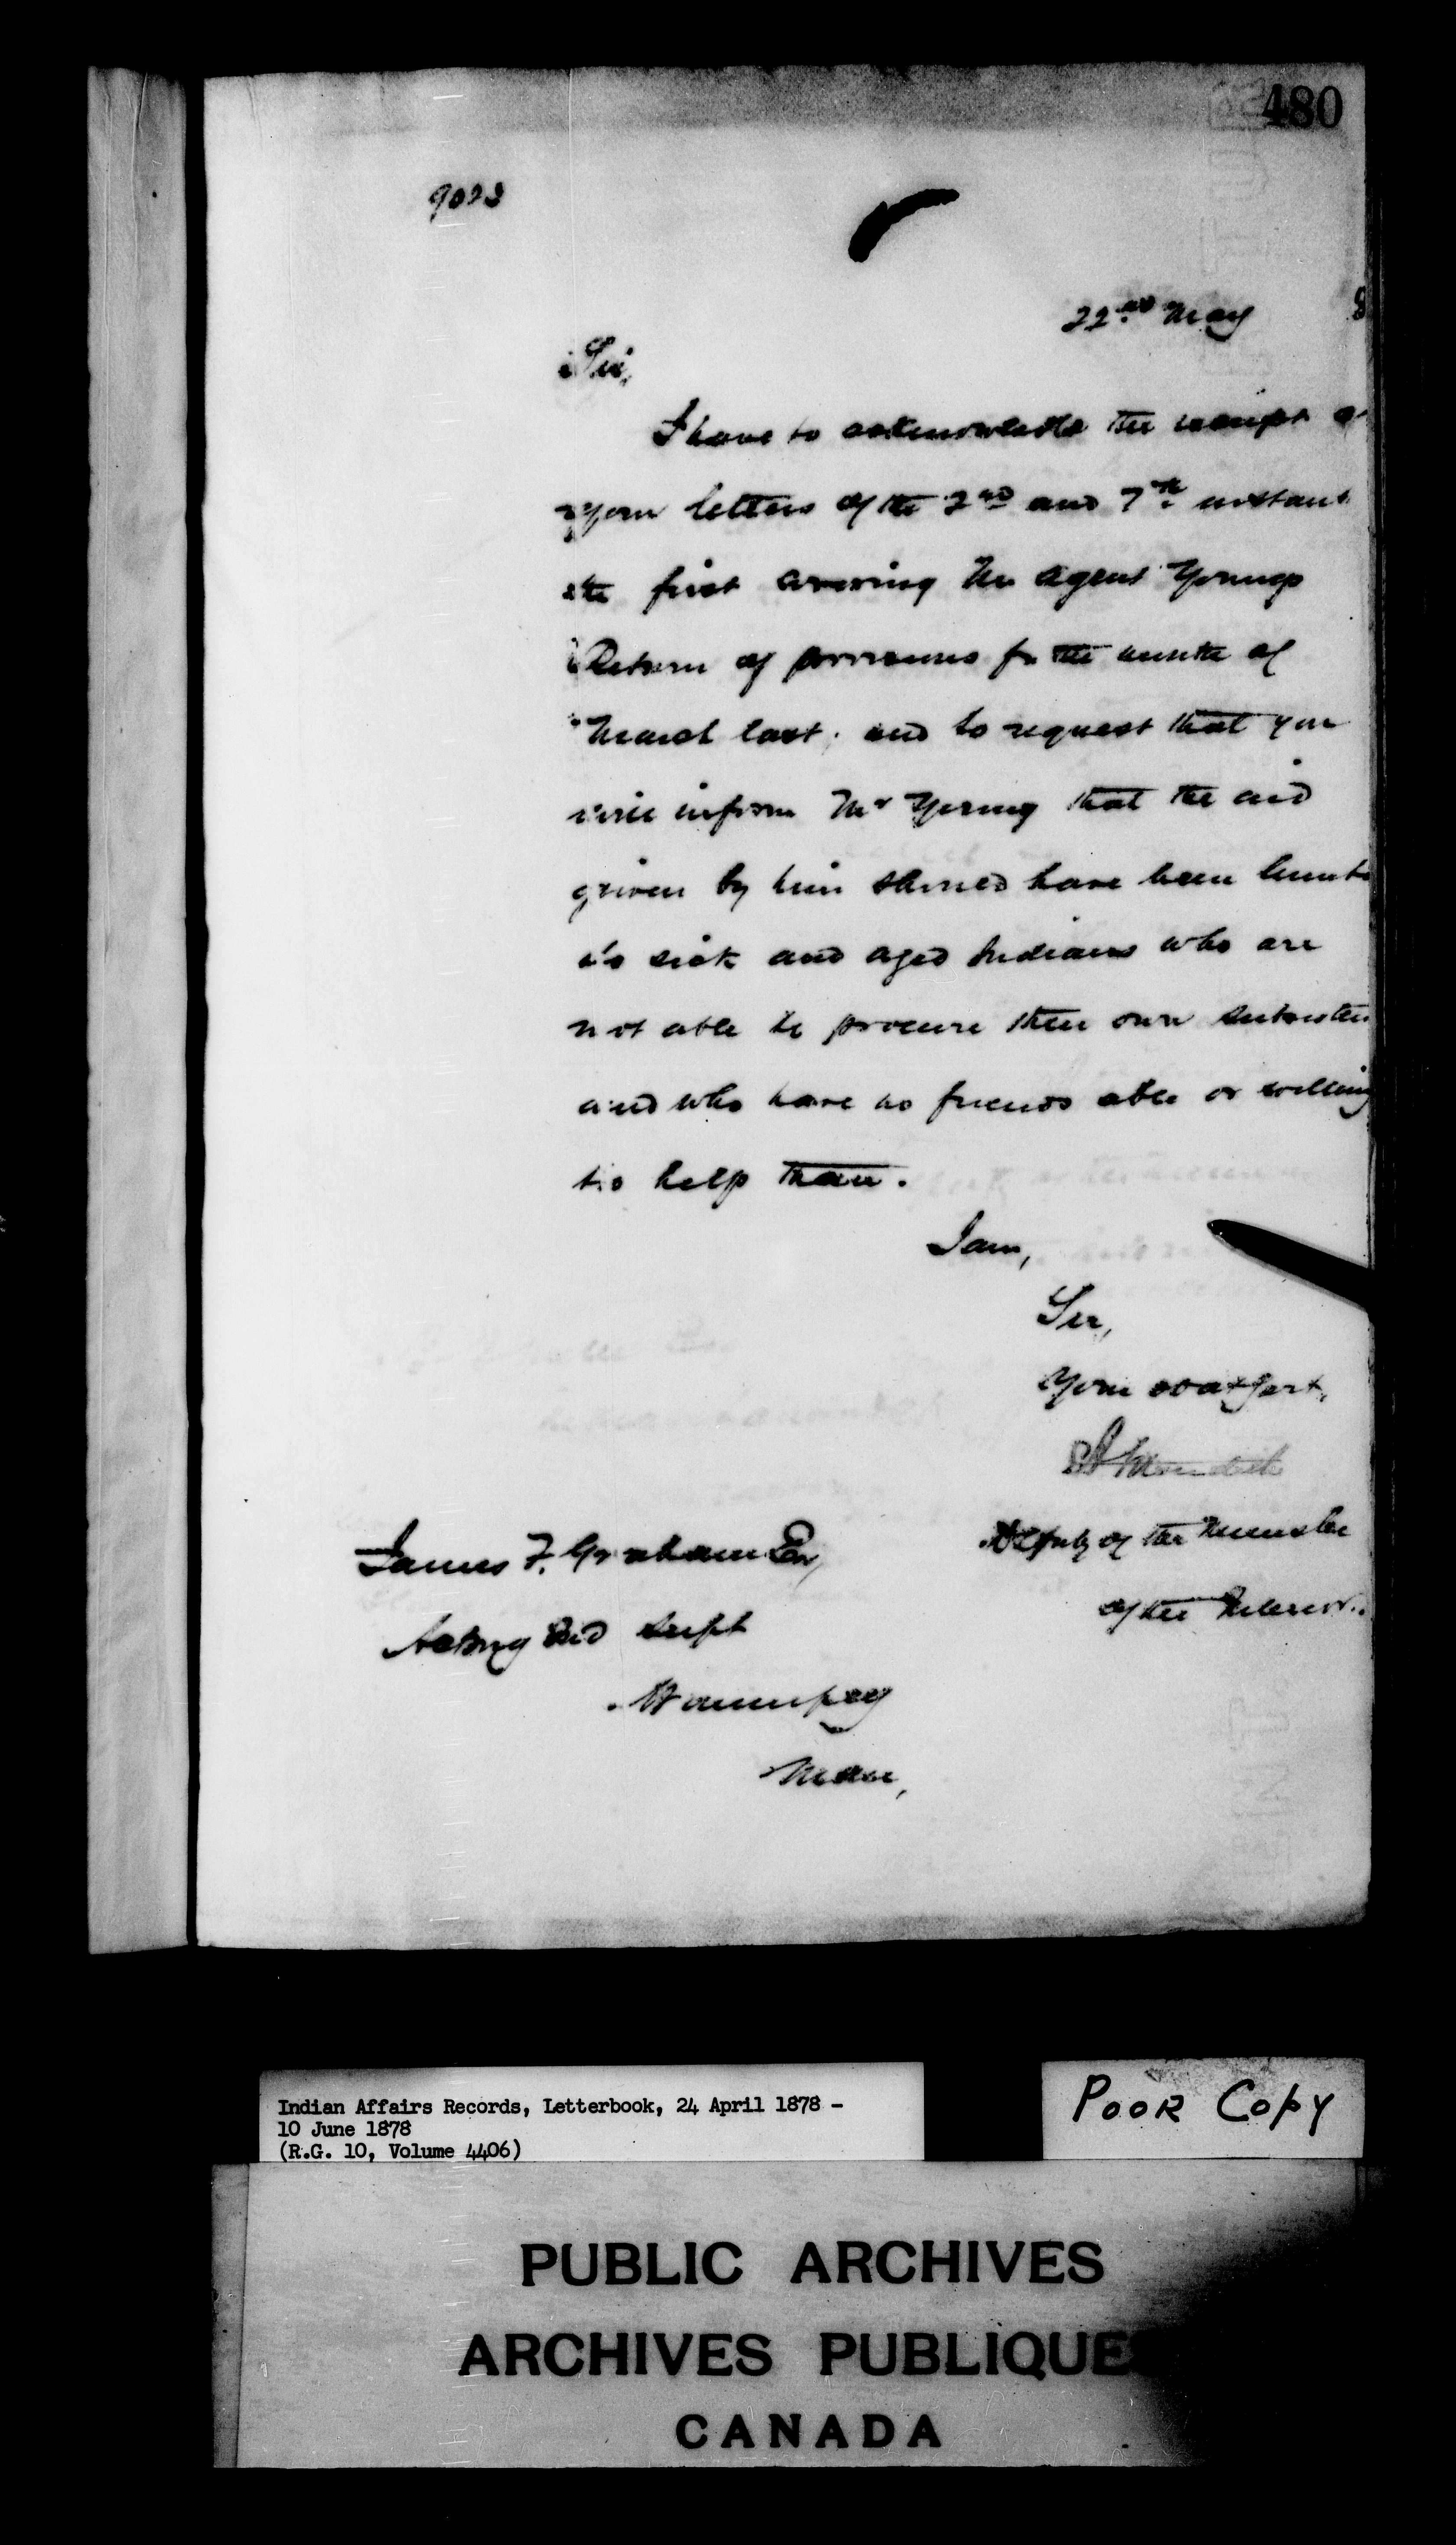 480
9023
22nd May 8
Sir,
I have to acknowledge the receipt o
your letters of the 2nd and 7th instant
the first covering Mr Agent Young's
Return of provisions for the month of
March last, and to request that you
will inform Mr Young that the aid
given by him should have been limite
to sick and aged Indians who are
not able to procure their own subsisten
and who have no friends able or willing
to help them.
I am,
Sir,
Your obdt Servt,
Deputy of the Minister
of the Interior.
James F. Graham Esq
Acting Ind Supt
Winnipeg
Man,
Indian Affairs Records, Letterbook, 24 April 1878 -
10 June 1878
(R.G. 10, Volume 4406)
POOR COPY
PUBLIC ARCHIVES
ARCHIVES PUBLIQUE
CANADA